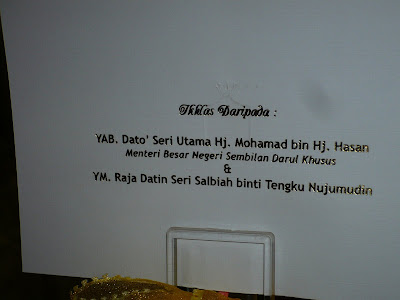 Ikhlas Daripada :
YAB. Dato' Seri Utama Hj. Mohamad bin Hj. Hasan
Menteri Besar Negeri Sembilan Darul Khusus
&
YM. Raja Datin Seri Salbiah binti Tengku Nujumudin